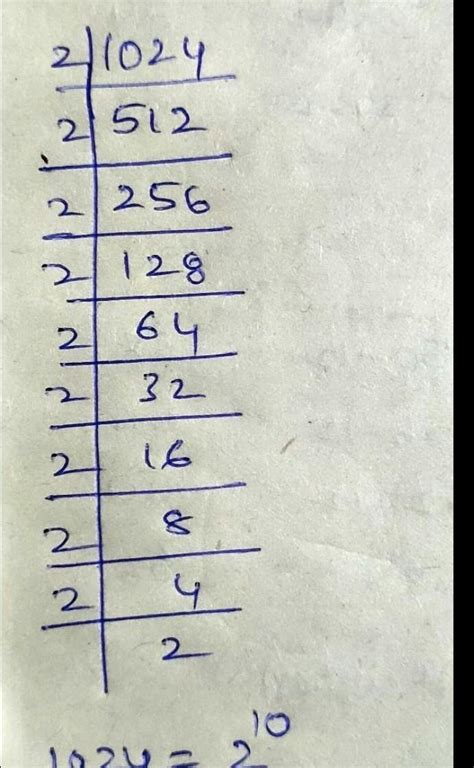 2 1024
2 512
2 256
2 128
2 64
2 32
2 16
2 8
2 4
2
1024 = 2^10